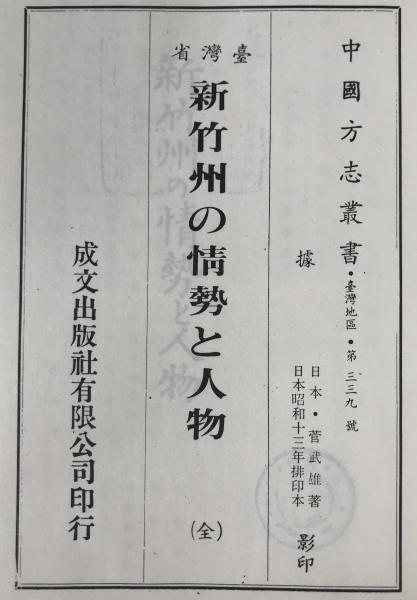 中國方志叢書・臺灣地區・第三三九號
據
日本・菅武雄著
日本昭和十三年排印本
影印
臺灣省
新竹州の情勢と人物
(全)
成文出版社有限公司印行